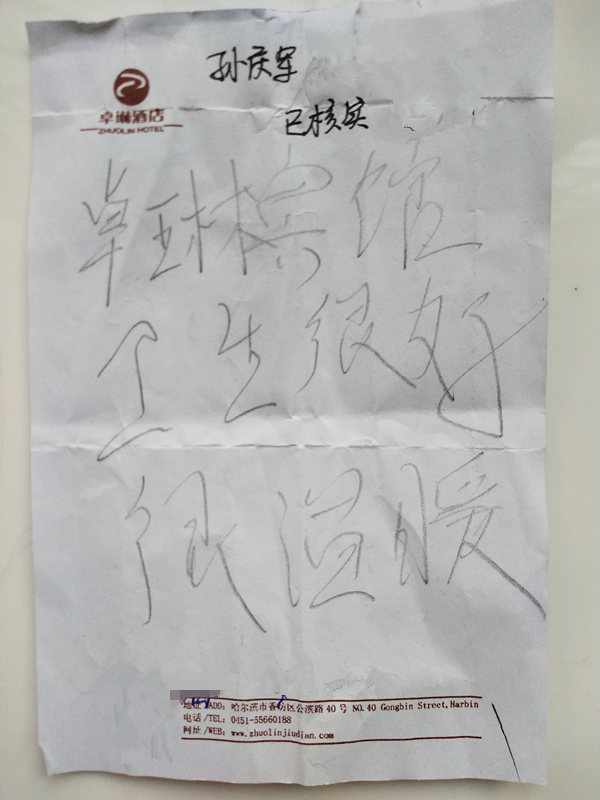 孙庆军
卓琳酒店
ZHUOLIN HOTEL
已核实
卓琳槟馆
卫生很好
很温暖
地址/ADD: 哈尔滨市香坊区公滨路40号 NO.40 Gongbin Street,Harbin
电话/TEL: 0451-55660188
网址/WEB: www.zhuolinjiudian.com